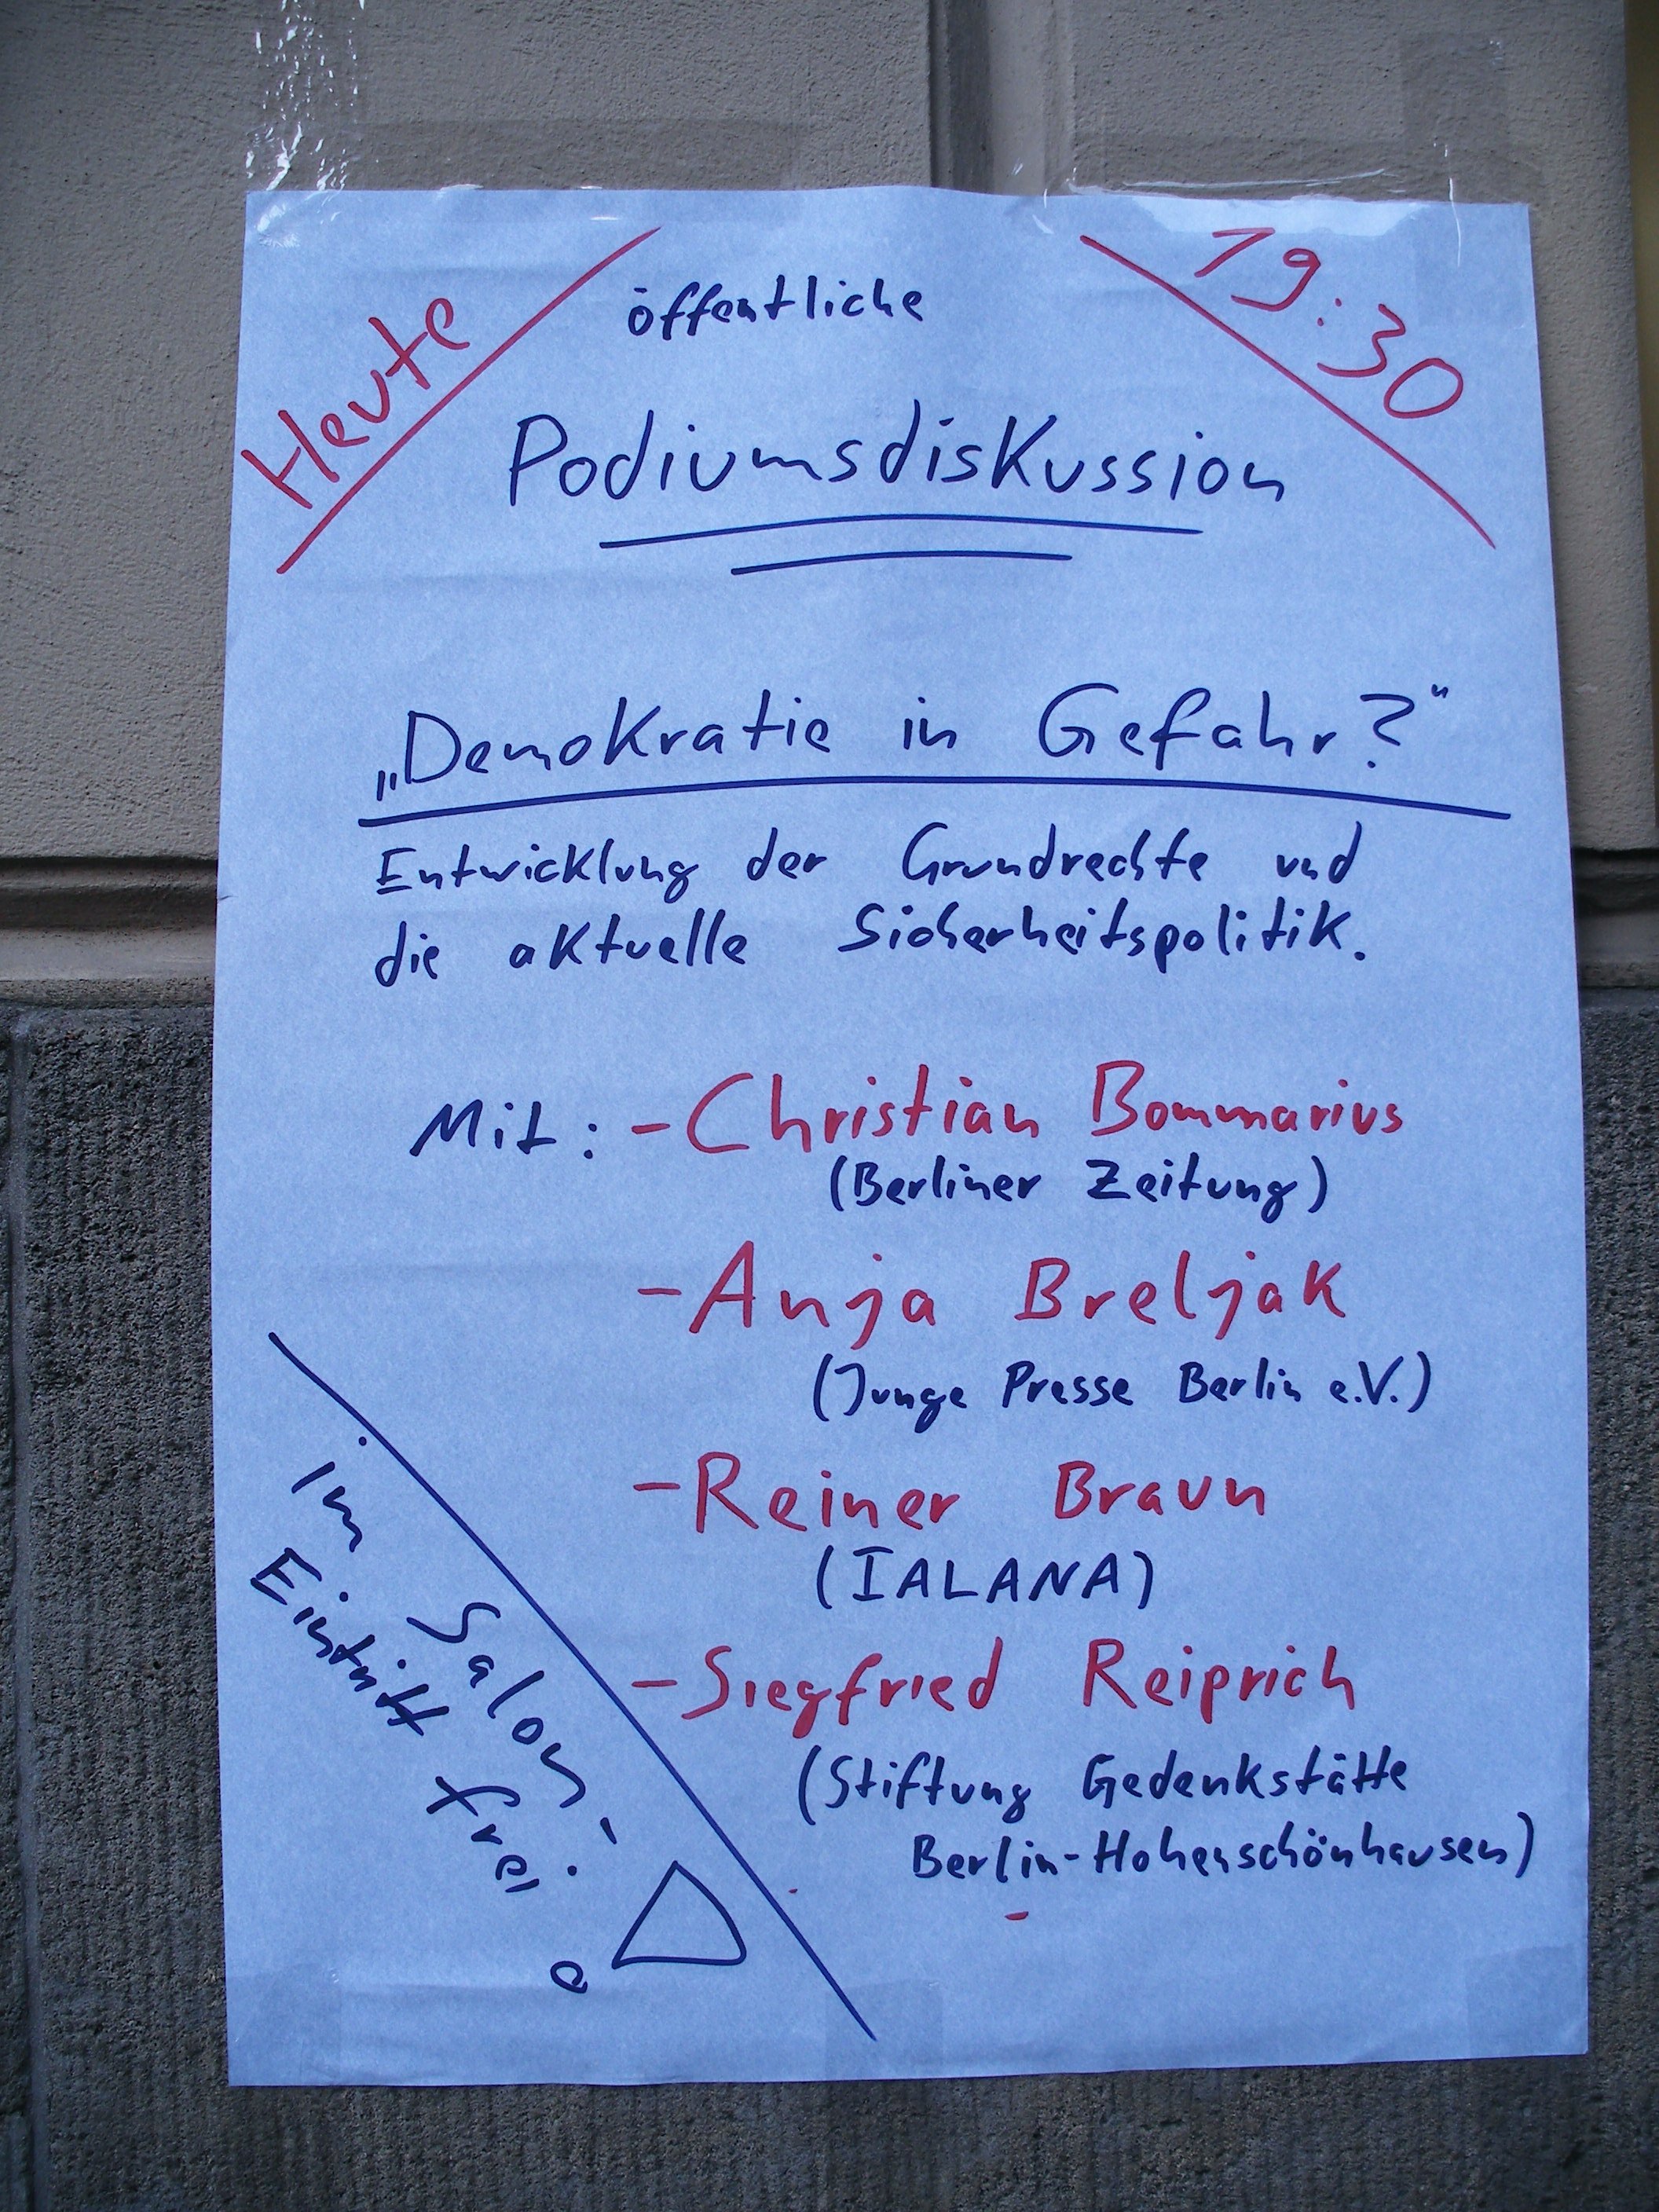 Heute
19:30
öffentliche
Podiumsdiskussion
„Demokratie in Gefahr?“
Entwicklung der Grundrechte und
die aktuelle Sicherheitspolitik.
Mit: - Christian Bommarius
(Berliner Zeitung)
- Anja Breljak
(Junge Presse Berlin e.V.)
- Reiner Braun
(IALANA)
- Siegfried Reiprich
(Stiftung Gedenkstätte
Berlin-Hohenschönhausen)
Im Salon!
Eintritt frei